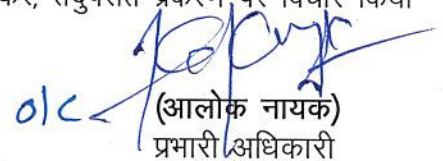 तदुपरांत प्रकरण पर विचार किया
O/C
(आलोक नायक)
प्रभारी अधिकारी